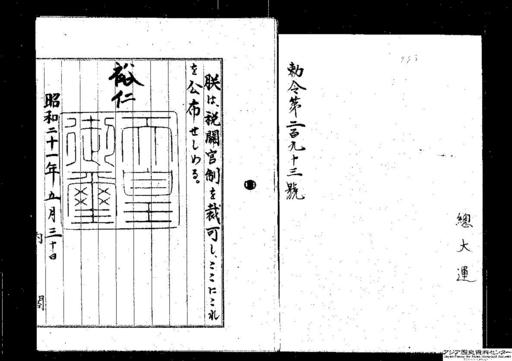 勅令第二百九十三號
總大運
朕は、税關官制を裁可し、ここにこれ
を公布せしめる。
裕仁
天皇御璽
昭和二十一年五月三十日
内閣
アジア歴史資料センター